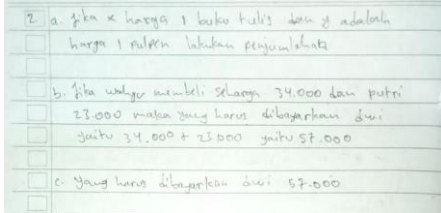 2 a. Jika x harga 1 buku tulis dan y adalah
harga 1 pulpen lakukan penjumlahan
b. Jika wahyu membeli seharga 34.000 dan putri
23.000 maka yang harus dibayarkan dwi
yaitu 34.000 + 23.000 yaitu 57.000
c. yang harus dibayarkan dwi 57.000